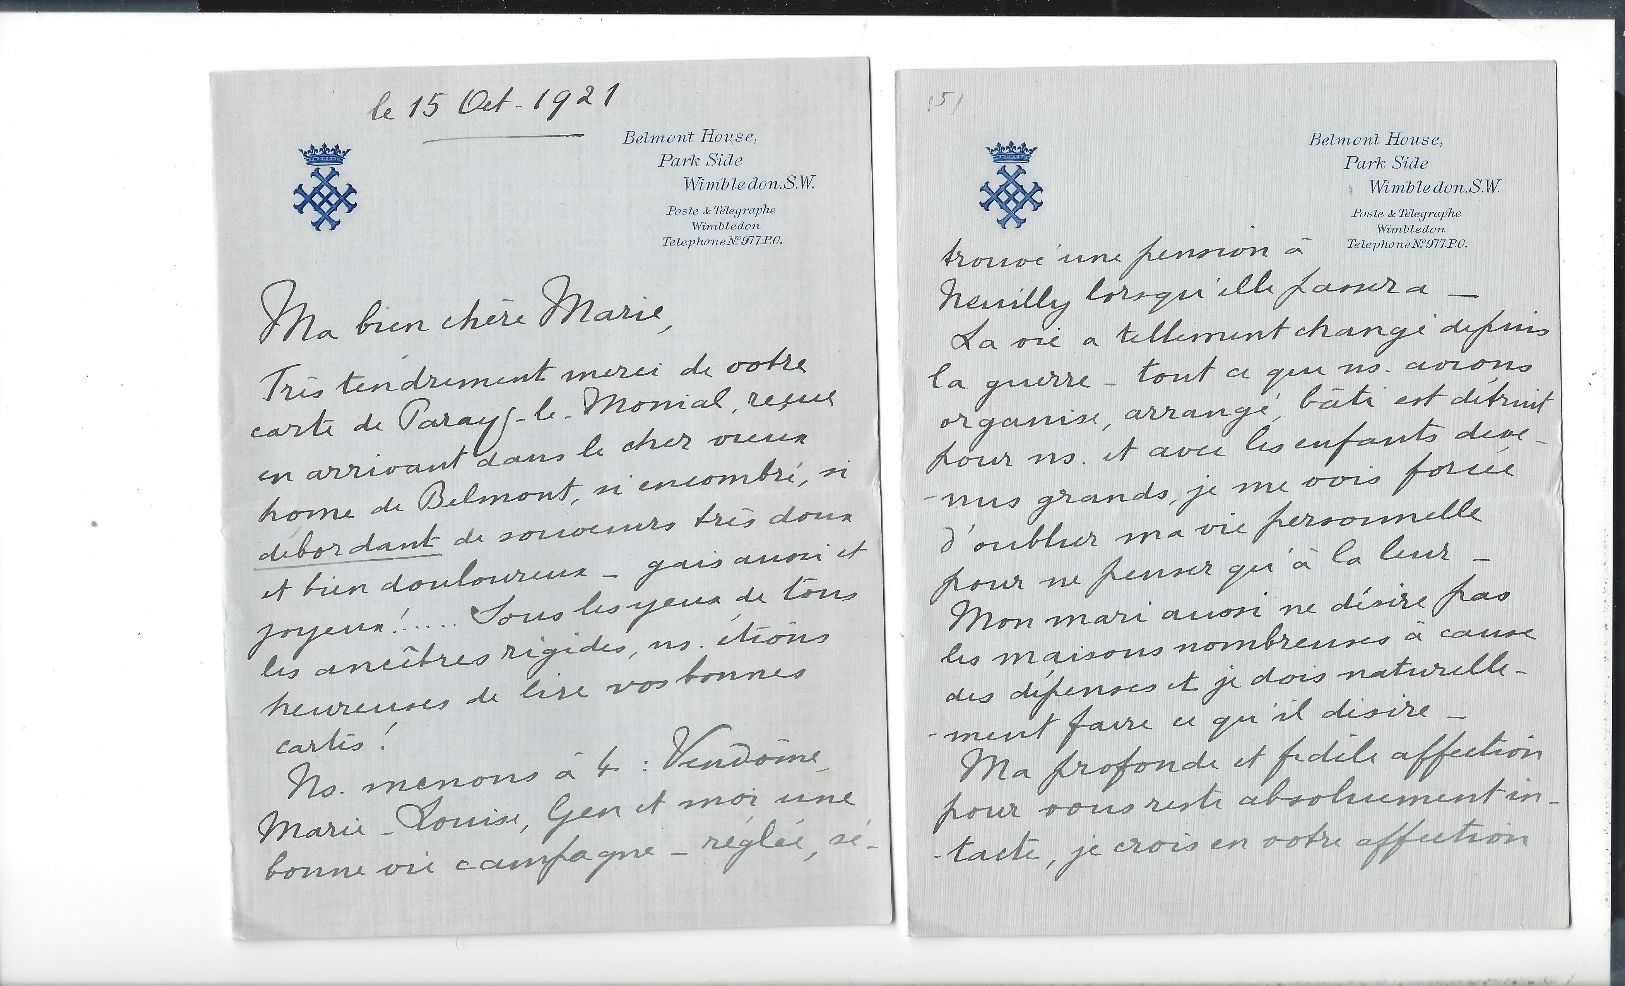 le 15 Oct - 1921
Belmont House,
Park Side
Wimbledon. S.W.
Poste & Télegraphe
Wimbledon
Telephone No 977 P.O.
Ma bien chère Marie,
Très tendrement merci de votre
carte de Paray-le-Monial, reçue
en arrivant dans le cher vieux
home de Belmont, si encombré, si
débordant de souvenirs très doux
et bien douloureux - gais aussi et
joyeux! ..... Sous les yeux de tous
les ancêtres rigides, ns. étions
heureuses de lire vos bonnes
cartes!
Ns. menons à 4 : Vendôme,
Marie-Louise, Gen et moi une
bonne vie campagne - réglée, sé-
(5)
Belmont House,
Park Side
Wimbledon. S.W.
Poste & Télegraphe
Wimbledon
Telephone No 977 P.O.
trouvé une pension à
Neuilly lorsqu'elle passera -
La vie a tellement changé depuis
la guerre - tout ce que ns. avions
organisé, arrangé, bâti est détruit
pour ns. et avec les enfants deve-
-nus grands, je me vois forcée
d'oublier ma vie personnelle
pour ne penser qu'à la leur -
Mon mari aussi ne désire pas
les maisons nombreuses à cause
des dépenses et je dois naturelle-
-ment faire ce qu'il désire -
Ma profonde et fidèle affection
pour vous reste absolument in-
-tacte, je crois en votre affection